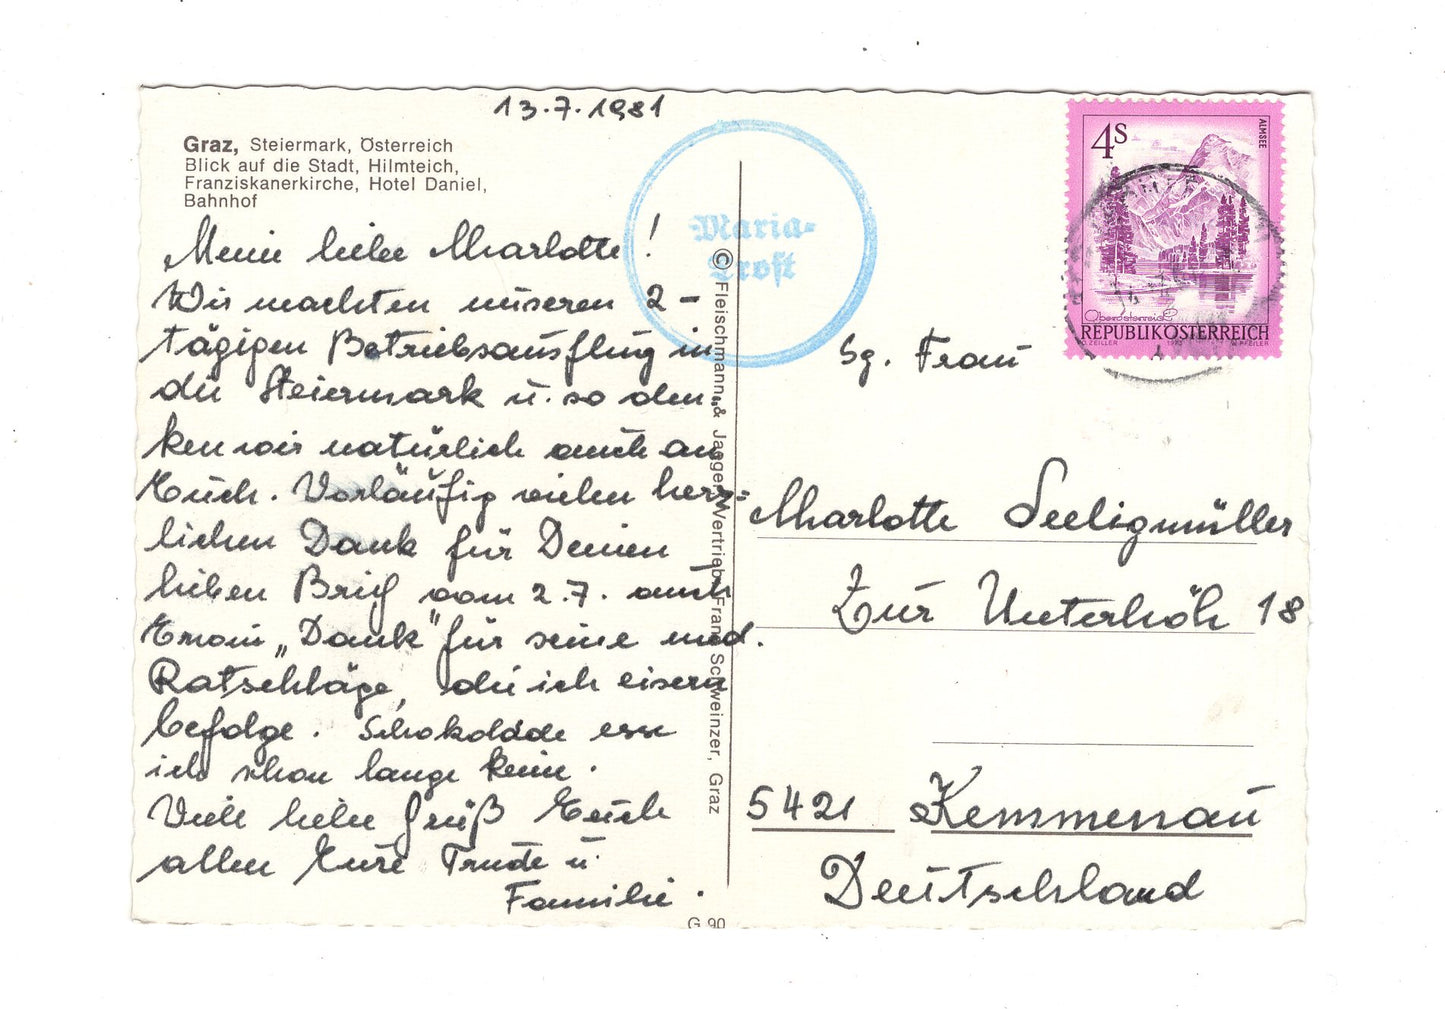 13.7.1981
Graz, Steiermark, Österreich
Blick auf die Stadt, Hilmteich,
Franziskanerkirche, Hotel Daniel,
Bahnhof
Meine liebe Charlotte!
Wir machten unseren 2-
tägigen Betriebsausflug in
die Steiermark u. so den-
ken wir natürlich auch an
Euch. Vorläufig vielen herz=
lichen Dank für Deinen
lieben Brief vom 2.7. auch
Erwin „Dank" für seine med.
Ratschläge, die ich eisern
befolge. Schokolade esse
ich schon lange keine.
Viele liebe Grüße Euch
allen Eure Trude u.
Familie.
© Fleischmann & Jaeger, Vertrieb: Franz Schweinzer, Graz
G 90
Maria-
Trost
4S
ALMSEE
Oberösterreich
REPUBLIK ÖSTERREICH
O. ZEILER
PFEILER
Sg. Frau
Charlotte Seeligmüller
Zur Unterhöh 18
5421 Kemmenau
Deutschland